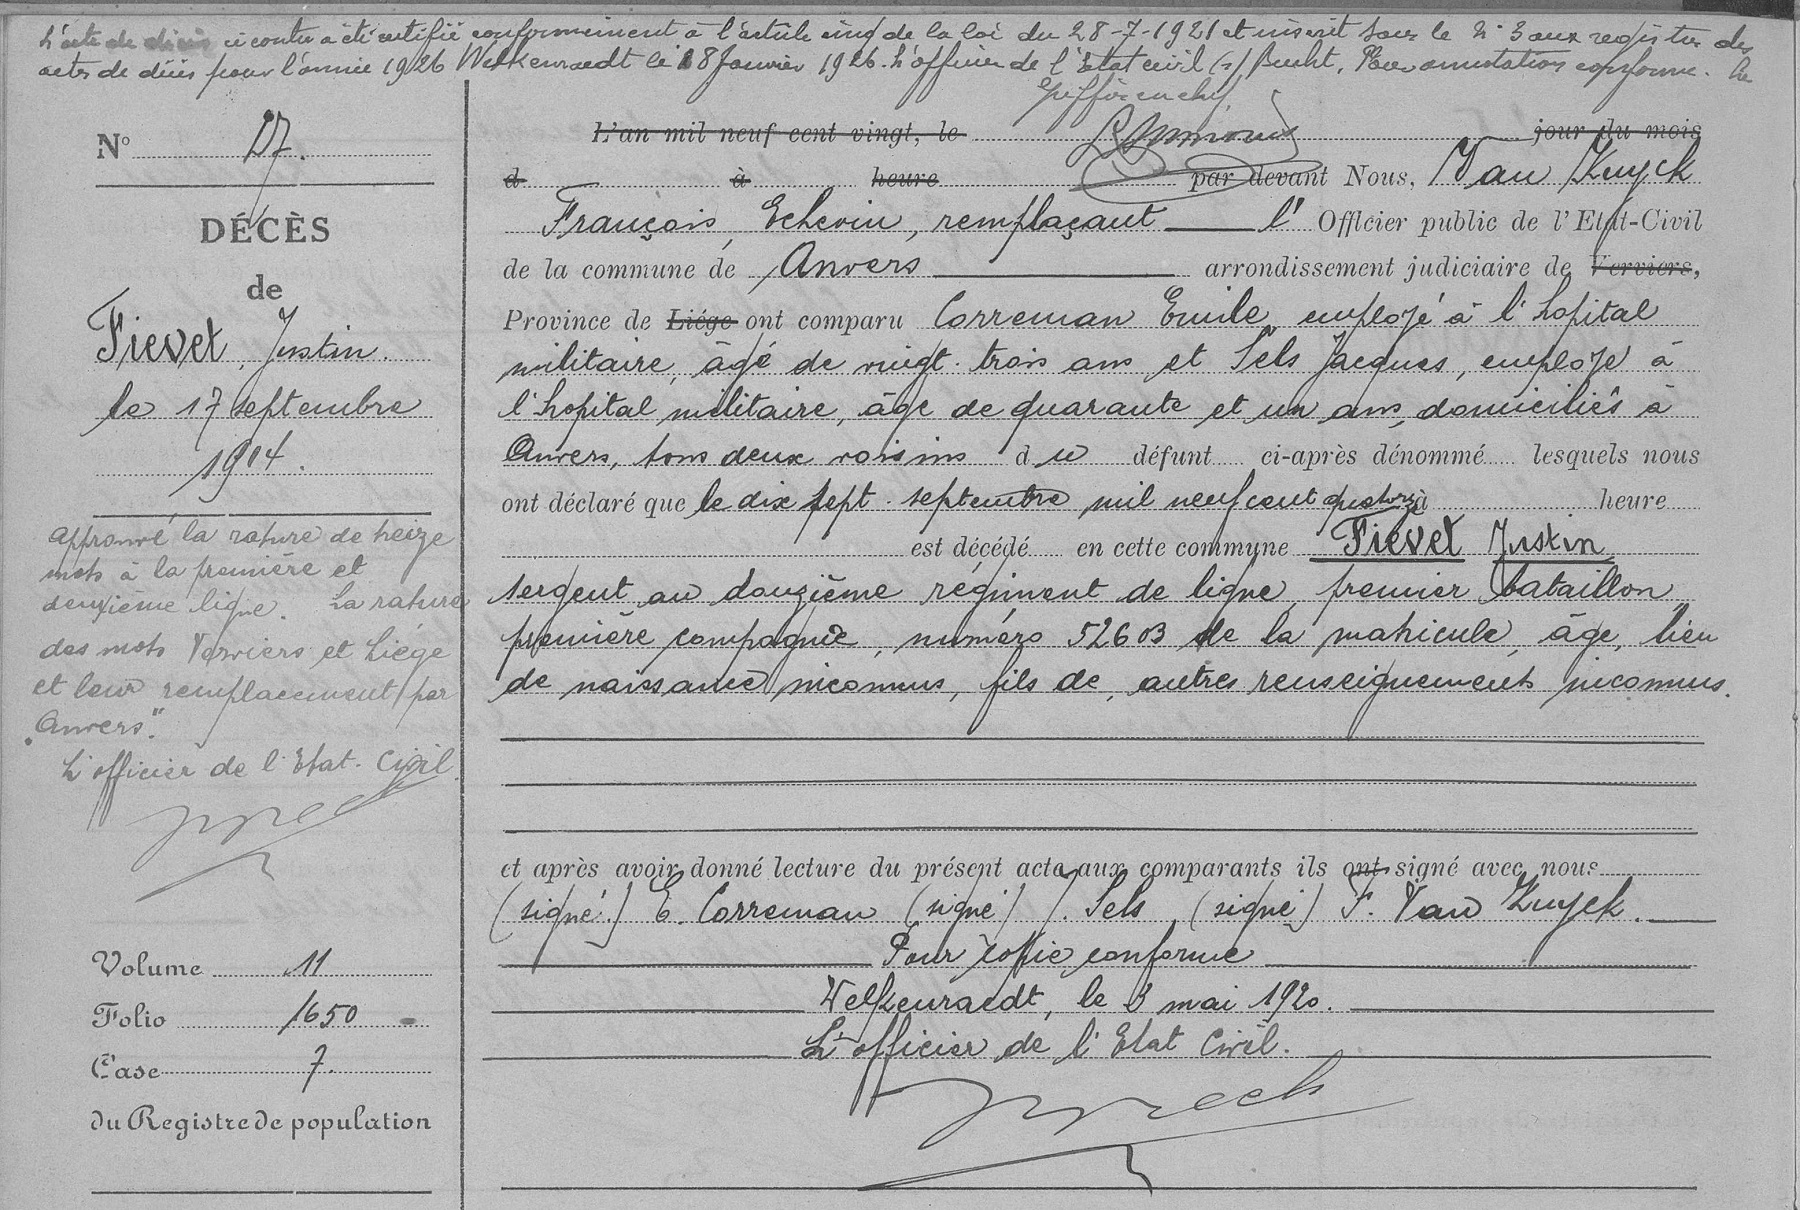 L'acte de décès ci contre a été rectifié conformément à l'article cinq de la loi du 28-7-1921 et inscrit sous le N° 3 aux registres des
actes de décès pour l'année 1926 Welkenraedt le 18 Janvier 1926. L'officier de l'Etat civil (s) Pour annotation conforme. Le
Greffier en chef,
N° 17.
DÉCÈS
de
Fievet, Justin.
le 17 septembre
1914.
Approuvé la rature de treize
mots à la première et
deuxième ligne. La rature
des mots Verviers et Liége
et leur remplacement par
"Anvers".
L'officier de l'Etat-Civil.
Volume 11
Folio 1650
Case 7.
du Registre de population
L'an mil neuf cent vingt, le jour du mois
d à heure par devant Nous, Van Kuyck
François, Echevin, remplaçant l' Officier public de l'Etat-Civil
de la commune de Anvers arrondissement judiciaire de Verviers,
Province de Liége ont comparu Correman Emile, employé à l'hopital
militaire, âgé de vingt-trois ans et Sels Jacques, employe à
l'hopital militaire, âge de quarante et un ans, domiciliés à
Anvers, tous deux voisins du défunt ci-après dénommé lesquels nous
ont déclaré que le dix sept septembre mil neuf cent quatorze à heure
est décédé en cette commune Fievet Justin
sergent au douzième régiment de ligne, premier bataillon,
première compagnie, numéro 52603 de la matricule, âge, lieu
de naissance inconnus, fils de, autres renseignements inconnus.
et après avoir donné lecture du présent acte aux comparants ils ont signé avec nous
(signé) E. Correman (signé) J. Sels (signé) F. Van Kuyck.
Pour copie conforme
Welkenraedt, le 3 mai 1920.
L'officier de l'Etat Civil.